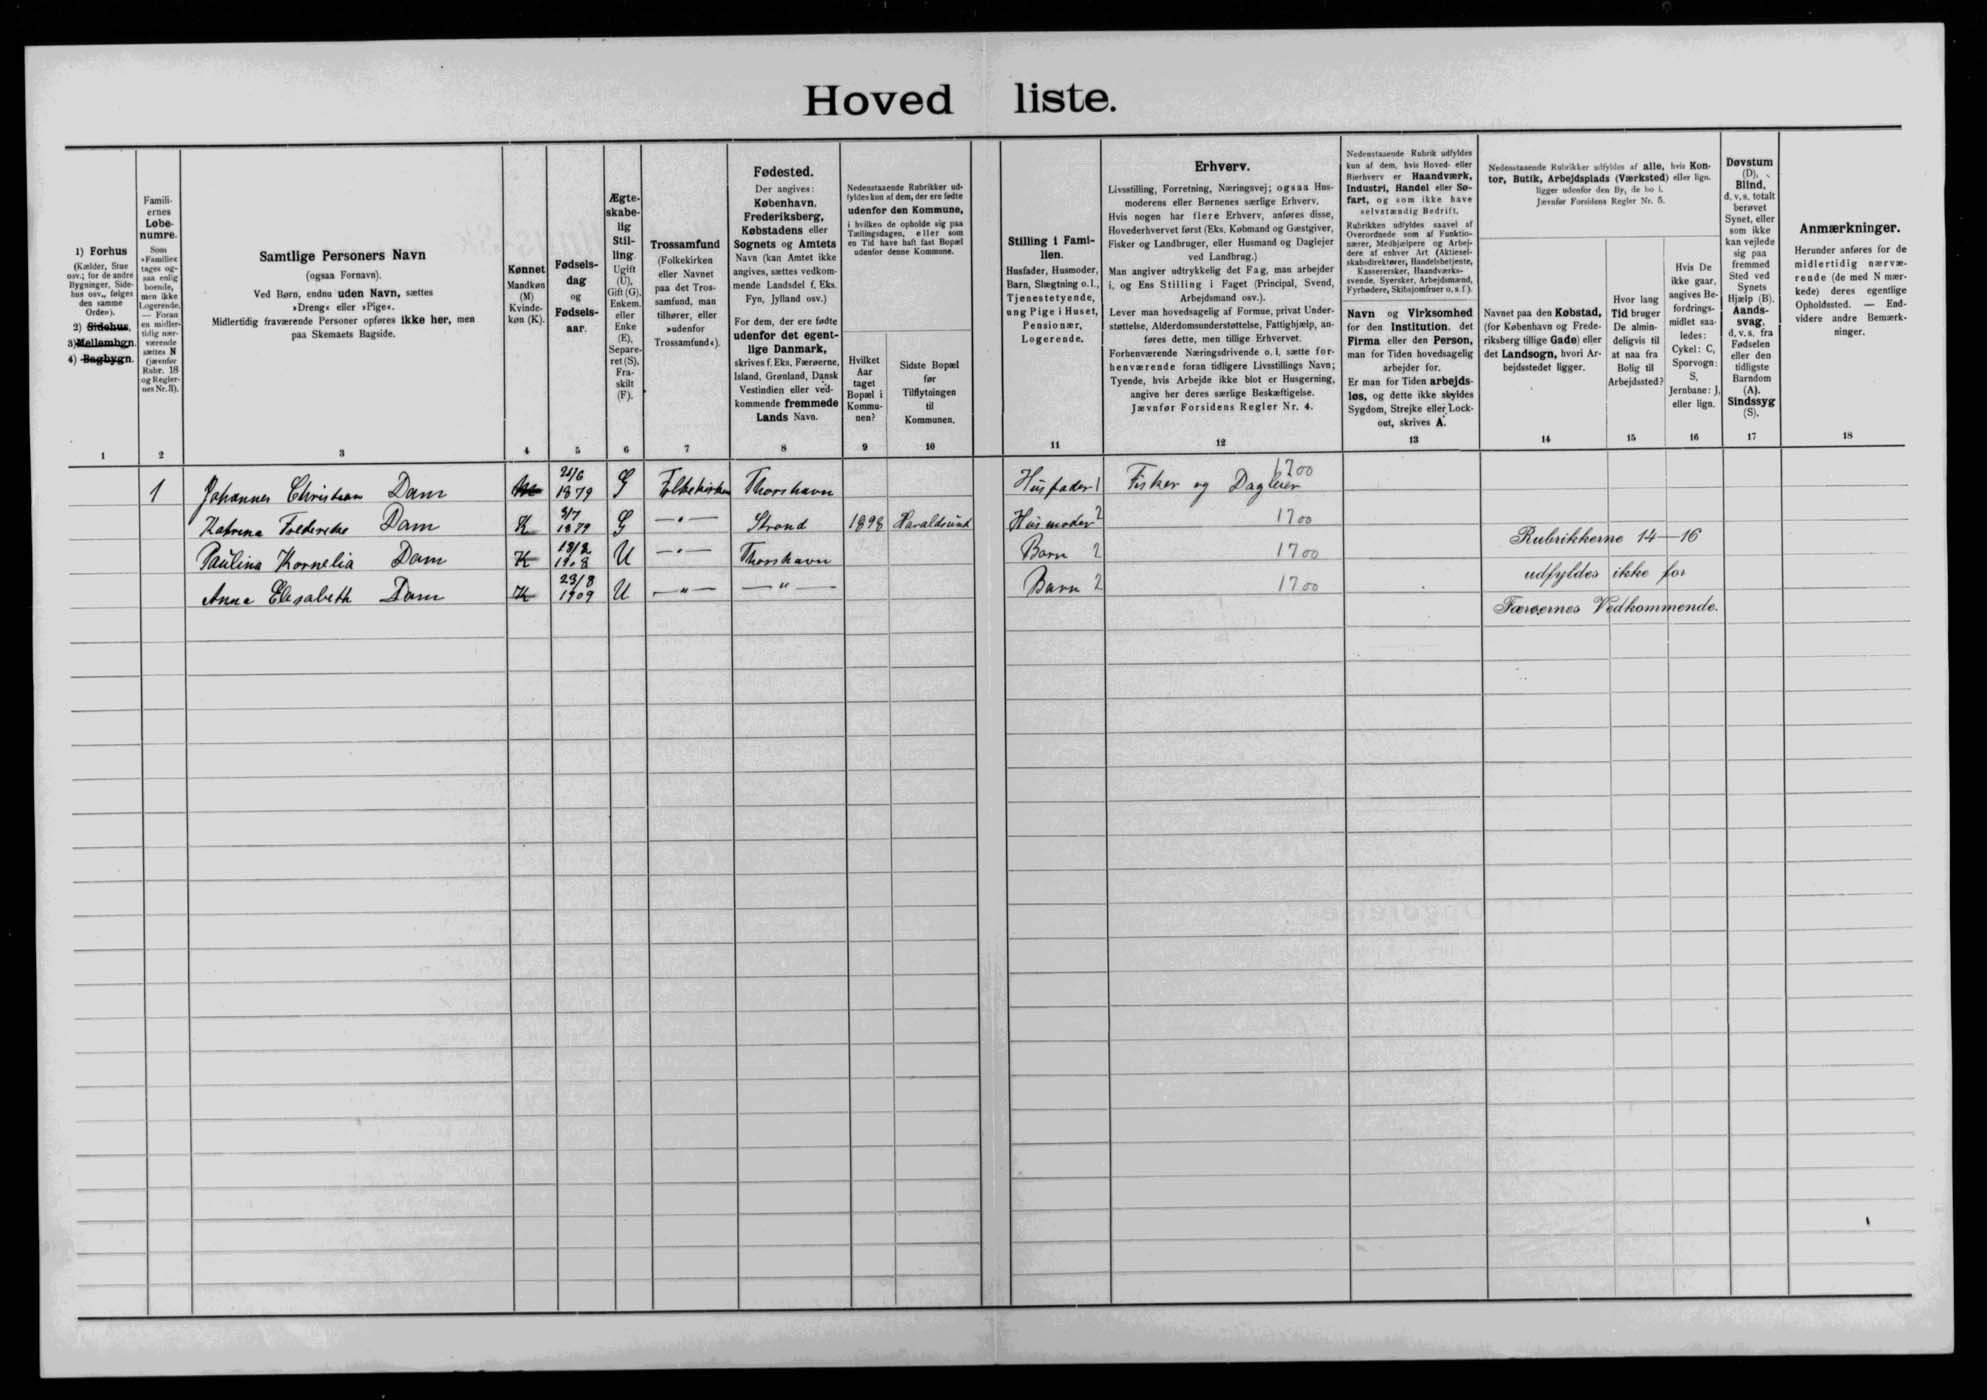 Hoved liste.
1) Forhus
(Kælder, Stue
osv.; for de andre
Bygninger, Side-
hus osv., følges
den samme
Orden).
2) Sidehus,
3) Mellembgn.
4) Bagbygn.
Famili-
ernes
Løbe-
numre.
Som
»Familie«
tages og-
saa enlig
boende,
men ikke
Logerende.
— Foran
en midler-
tidig nær-
værende
sættes N
(jævnfør
Rubr. 18
og Regler-
nes Nr. 3).
Samtlige Personers Navn
(ogsaa Fornavn).
Ved Børn, endnu uden Navn, sættes
»Dreng« eller »Pige«.
Midlertidig fraværende Personer opføres ikke her, men
paa Skemaets Bagside.
Kønnet
Mandkøn
(M)
Kvinde-
køn (K).
Fødsels-
dag
og
Fødsels-
aar.
Ægte-
skabe-
lig
Stil-
ling.
Ugift
(U),
Gift (G),
Enkem.
eller
Enke
(E),
Separe-
ret (S),
Fra-
skilt
(F).
Trossamfund
(Folkekirken
eller Navnet
paa det Tros-
samfund, man
tilhører, eller
»udenfor
Trossamfund«).
Fødested.
Der angives:
København,
Frederiksberg,
Købstadens eller
Sognets og Amtets
Navn (kan Amtet ikke
angives, sættes vedkom-
mende Landsdel f. Eks.
Fyn, Jylland osv.)
For dem, der ere fødte
udenfor det egent-
lige Danmark,
skrives f. Eks. Færøerne,
Island, Grønland, Dansk
Vestindien eller ved-
kommende fremmede
Lands Navn.
Nedenstaaende Rubrikker ud-
fyldes kun af dem, der ere fødte
udenfor den Kommune,
i hvilken de opholde sig paa
Tællingsdagen, eller som
en Tid have haft fast Bopæl
udenfor denne Kommune.
Hvilket
Aar
taget
Bopæl i
Kommu-
nen?
Sidste Bopæl
før
Tilflytningen
til
Kommunen.
Stilling i Fami-
lien.
Husfader, Husmoder,
Barn, Slægtning o. l.,
Tjenestetyende,
ung Pige i Huset,
Pensionær,
Logerende.
Erhverv.
Livsstilling, Forretning, Næringsvej; ogsaa Hus-
moderens eller Børnenes særlige Erhverv.
Hvis nogen har flere Erhverv, anføres disse,
Hovederhvervet først (Eks. Købmand og Gæstgiver,
Fisker og Landbruger, eller Husmand og Daglejer
ved Landbrug.)
Man angiver udtrykkelig det Fag, man arbejder
i, og Ens Stilling i Faget (Principal, Svend,
Arbejdsmand osv.).
Lever man hovedsagelig af Formue, privat Under-
støttelse, Alderdomsunderstøttelse, Fattighjælp, an-
føres dette, men tillige Erhvervet.
Forhenværende Næringsdrivende o. l. sætte for-
henværende foran tidligere Livsstillings Navn;
Tyende, hvis Arbejde ikke blot er Husgerning,
angive her deres særlige Beskæftigelse.
Jævnfør Forsidens Regler Nr. 4.
Nedenstaaende Rubrik udfyldes
kun af dem, hvis Hoved- eller
Bierhverv er Haandværk,
Industri, Handel eller Sø-
fart, og som ikke have
selvstændig Bedrift.
Rubrikken udfyldes saavel af
Overordnede som af Funktio-
nærer, Medhjælpere og Arbej-
dere af enhver Art (Aktiesel-
skabsdirektører, Handelsbetjente,
Kassererskер, Haandværks-
svende, Syersker, Arbejdsmænd,
Fyrbødere, Skibsjomfruer o. s. f.).
Navn og Virksomhed
for den Institution, det
Firma eller den Person,
man for Tiden hovedsagelig
arbejder for.
Er man for Tiden arbejds-
løs, og dette ikke skyldes
Sygdom, Strejke eller Lock-
out, skrives A.
Nedenstaaende Rubrikker udfyldes af alle, hvis Kon-
tor, Butik, Arbejdsplads (Værksted) eller lign.
ligger udenfor den By, de bo i.
Jævnfør Forsidens Regler Nr. 5.
Navnet paa den Købstad,
(for København og Frede-
riksberg tillige Gade) eller
det Landsogn, hvori Ar-
bejdsstedet ligger.
Hvor lang
Tid bruger
De almin-
deligvis til
at naa fra
Bolig til
Arbejdssted?
Hvis De
ikke gaar,
angives Be-
fordrings-
midlet saa-
ledes:
Cykel: C,
Sporvogn:
S,
Jernbane: J,
eller lign.
Døvstum
(D),
Blind,
d. v. s. totalt
berøvet
Synet, eller
som ikke
kan vejlede
sig paa
fremmed
Sted ved
Synets
Hjælp (B).
Aands-
svag,
d. v. s. fra
Fødselen
eller den
tidligste
Barndom
(A).
Sindssyg
(S).
Anmærkninger.
Herunder anføres for de
midlertidig nærvæ-
rende (de med N mær-
kede) deres egentlige
Opholdssted. — End-
videre andre Bemærk-
ninger.
1 2 3 4 5 6 7 8 9 10 11 12 13 14 15 16 17 18
1 Johannes Christian Dam M 21/6 1879 G Folkekirken Thorshavn Husfader 1 Fisker og Dagleier 1700
Katrina Frederike Dam K 3/7 1879 G —"— Strond 1898 Haraldsund Husmoder 2 1700
Paulina Kornelia Dam K 13/2 1908 U —"— Thorshavn Barn 2 1700
Anna Elisabeth Dam K 23/8 1909 U —"— —"— Barn 2 1700
Rubrikkerne 14—16
udfyldes ikke for
Færøernes Vedkommende.